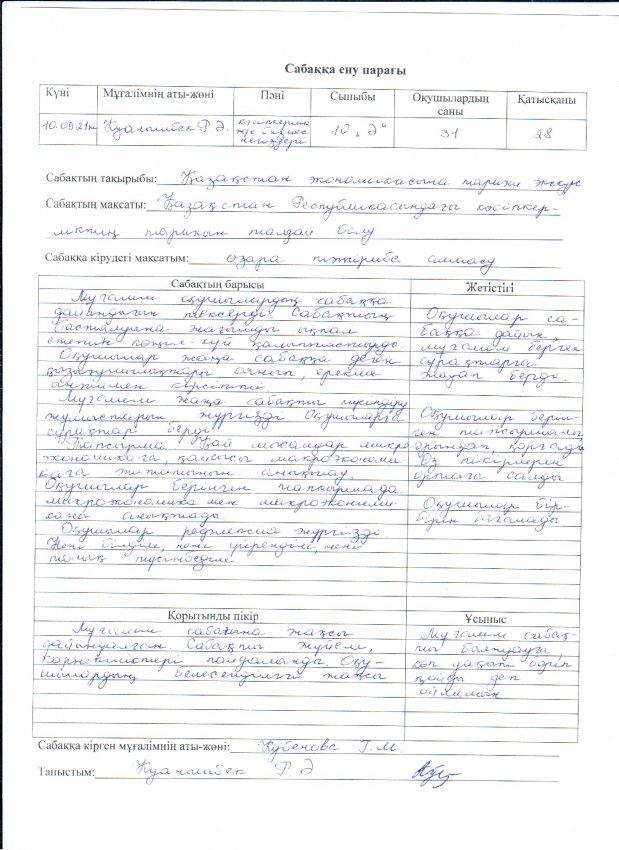 Сабаққа ену парағы
Күні Мұғалімнің аты-жөні Пәні Сыныбы Оқушылардың саны Қатысқаны
10.09.21ж Қуанышбек Р Ә. кәсіпкерлік және бизнес негіздері 10 „Ә" 31 28
Сабақтың тақырыбы: Қазақстан экономикасына тарихи экскурс
Сабақтың мақсаты: Қазақстан Республикасындағы кәсіпкер-
ліктің тарихын талдай білу
Сабаққа кірудегі мақсатым: өзара тәжірибе алмасу
Сабақтың барысы
Мұғалім оқушылардың сабаққа
дайындығын тексерді. Сабақтың
басталуына жағымды ықпал
ететін көңіл-күй қалыптастырды.
Оқушылар жаңа сабаққа деген
қызығушылықтары оянып, ерекше
көрсетті.
Мұғалім жаңа сабақты түсіндіру
жұмыстарын жүргізді Оқушыларға
сұрақтар берді
Тапсырма Қай мысалдар микро
экономикаға, қайсысы макроэкономи
каға жататынын анықтау.
Оқушылар берілген тапсырмада
микроэкономика мен макроэкономи-
каны анықтады
Оқушылар рефлексия жүргізді
Нені білдім, нені үйрендім, нені
толық түсінбедім
Жетістігі
Оқушылар са-
баққа дайын,
мұғалім берген
сұрақтарға
жауап берді.
Оқушылар беріл-
ген тапсырманы
орындап, қорғады
Өз пікірлерін
ортаға салды
Оқушылар бір-
бірін бағалады
Қорытынды пікір
Мұғалім сабағына жақсы
дайындалған Сабақты жүйелі,
көрнекіліктері пайдаланды. Оқу-
шылардың белсенділігі жақсы
Ұсыныс
Мұғалім сабақ-
ты баяндауға
көп уақыт бөліп
қойды деп
ойлаймын
Сабаққа кірген мұғалімнің аты-жөні: Кубенова Г.М.
Таныстым: Қуанышбек Р Ә